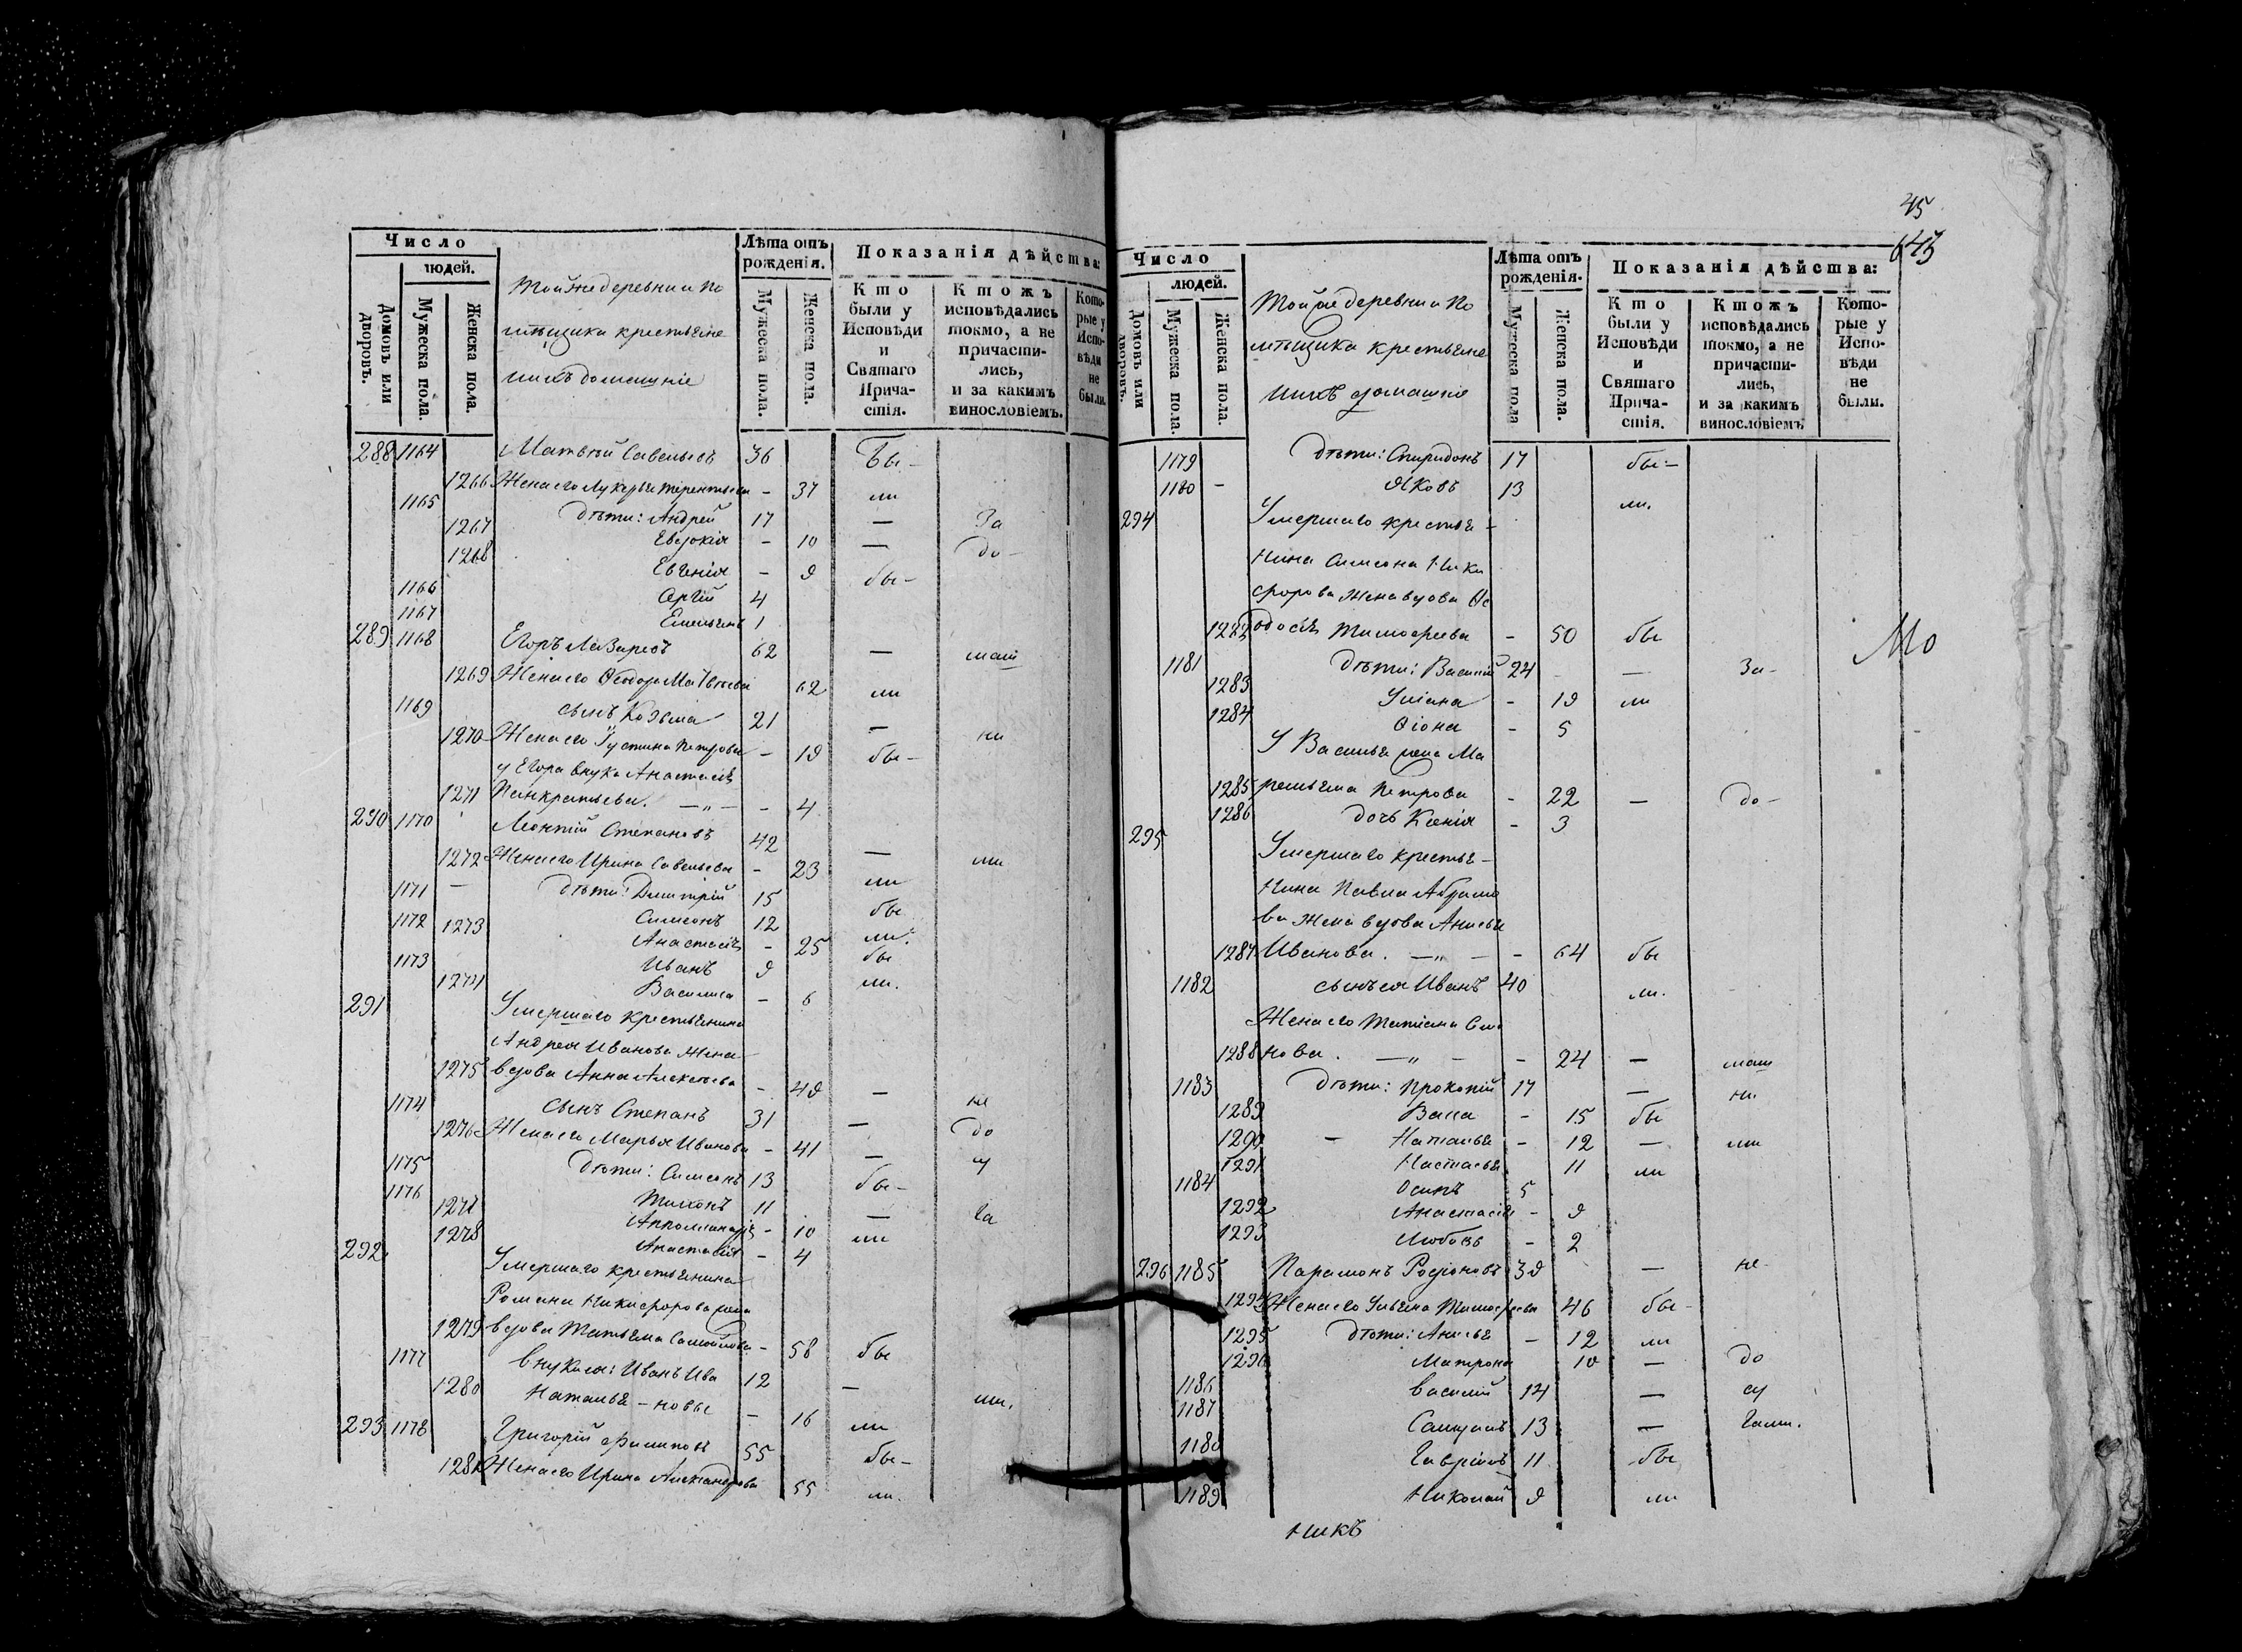 Число
людей.
Домовъ или дворовъ.
Мужеска пола.
Женска пола.
Тойже деревни и по
мѣщика крестьяне
и ихъ домашніе
Лѣта отъ рожденія.
Мужеска пола.
Женска пола.
Показанія дѣйства:
Кто были у Исповѣди и Святаго Прича-стія.
Ктожъ исповѣдались токмо, а не причасти-лись, и за какимъ винословіемъ.
Кото-рые у Испо-вѣди не были.
288 1164 Матвѣй Савельевъ 36 бы-
1266 Жена его Лукерья Терентьева - 37 ли
1165 дѣти: Андрей 17 — За
1267 Евдокія - 10 — до-
1268 Евгенія - 9 бы-
1166 Сергій 4
1167 Емельянъ 1
289 1168 Егоръ Лазаревъ 62 — мал
1269 Жена его Ѳеодора Матвѣева 62 ли
1169 сынъ Козьма 21 —
1270 Жена его Іустина Петрова - 19 бы- ли
у Егора внука Анастасія
1271 Панкратьева. —„— - 4
290 1170 Леонтій Степановъ 42 —
1272 Жена его Ирина Савельева - 23 ли ли
1171 — дѣти: Димитрій 15 бы
1172 Симеонъ 12 ли.
1273 Анастасія - 25 бы
1173 Иванъ 9 ли.
1274 Василиса - 6
291 Умершаго крестьянина
Андрея Иванова жена
1275 вдова Анна Алексѣева - 49 — не
1174 сынъ Степанъ 31 — до
1276 Жена его Марья Иванова - 41 — су
1175 Дѣти: Симеонъ 13 бы-
1176 Тимонъ 11 — га
1277 Апполинарія - 10 ли
1278 Анастасія - 4
292 Умершаго крестьянина
Романа Никифорова жена
1279 вдова Татьяна Самойлова - 58 бы
1177 внуки ея: Иванъ Ива 12 — ли.
1280 Наталья - новы - 16 ли
293 1178 Григорій Филиповъ 55 бы-
1281 Жена его Ирина Александрова 55 ли.
45
643
Число
людей.
Домовъ или дворовъ.
Мужеска пола.
Женска пола.
Тойже деревни и по
мѣщика крестьяне
и ихъ домашніе
Лѣта отъ рожденія.
Мужеска пола
Женска пола.
Показанія дѣйства:
Кто были у Исповѣди и Святаго Прича-стія.
Ктожъ исповѣдались токмо, а не причасти-лись, и за какимъ винословіемъ
Кото-рые у Испо-вѣди не были.
1179 дѣти: Спиридонъ 17 бы-
1180 - Яковъ 13 ли.
294 Умершаго крестья-
нина Симеона Ники
форова жена вдова Ѳе
1282 одосія Тимофеева - 50 бы
1181 дѣти: Василій 24 — За-
1283 Уліана - 19 ли
1284 Ѳіона - 5
У Василья жена Ма
1285 ремьяна Петрова - 22 — до-
1286 дочь Ксенія - 3
295 Умершаго крестья-
нина Павла Абрамо
ва жена вдова Анисья
1287 Иванова. —„— - 64 бы
1182 сынъ ея Иванъ 40 ли.
Жена его Татіана Симо
1288 нова. —„— - 24 — мал
1183 Дѣти: Прокопій 17 — ли.
1289 Васса - 15 бы
1290 - Наталья - 12 — ли
1291 Настасья 11 ли
1184 Осипъ 5
1292 Анастасія - 9
1293 Любовь - 2
296 1185 Парамонъ Родіоновъ 39 — не-
1294 Жена его Ульяна Тимофеева 46 бы-
1295 Дѣти: Анисья - 12 ли
1296 Матрона 10 — до
1186 Василій 14 — су
1187 Самуилъ 13 — гали.
1188 Гавріилъ 11 бы
1189 Николай 9 ли
Мо
никъ